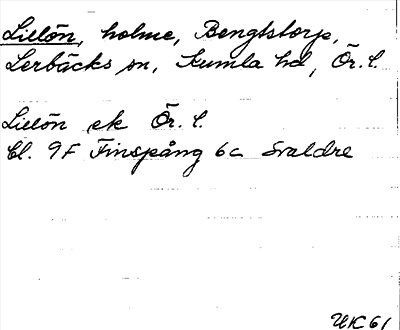 Lillön, holme, Bengtstorp,
Lerbäcks sn, Kumla hd, Ör. l.
Lillön ek Ör. l.
Bl. 9F Finspång 6c Svaldre
UK 61